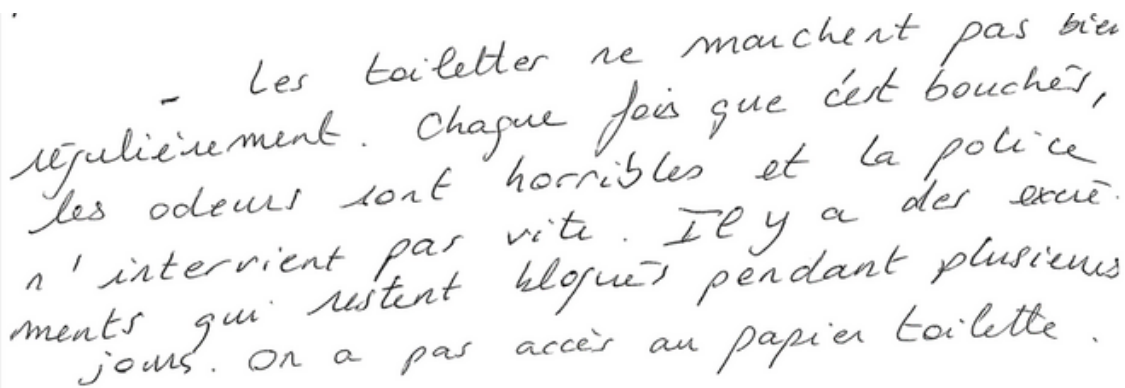 - Les toilettes ne marchent pas bien
régulièrement. Chaque fois que c'est bouchés,
les odeurs sont horribles et la police
n'intervient pas vite. Il y a des excré-
ments qui restent bloqués pendant plusieurs
jours. On a pas accès au papier toilette.